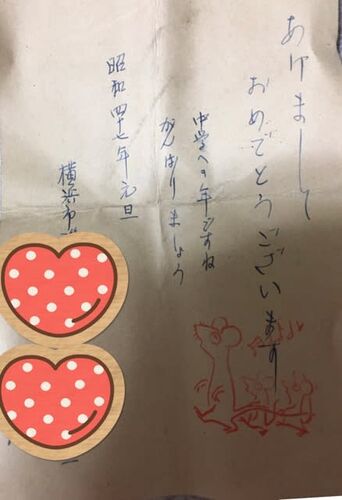 あけまして
おめでとうございます
中学への年ですね
がんばりましょう
昭和四十七年元旦
横浜市